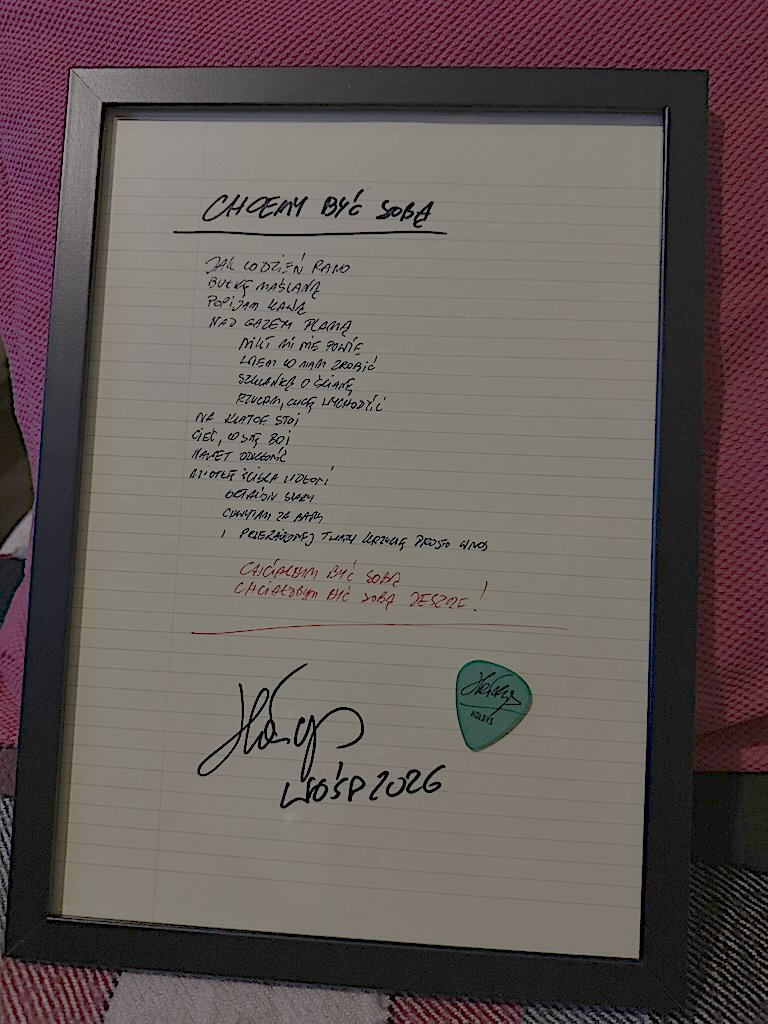 CHCEMY BYĆ SOBĄ
JAK CO DZIEŃ RANO
BUŁKĘ MAŚLANĄ
POPIJAM KAWĄ
NAD GAZETY PLAMĄ
NIKT MI NIE POWIE
WIEM CO MAM ZROBIĆ
SZKLANKĄ O ŚCIANĘ
RZUCAM, CHCĘ WYCHODZIĆ
NA KLATCE STOI
CIEĆ, CO SIĘ BOI
NAWET ODKŁONIĆ
MIOTŁĘ ŚCISKA W DŁONI
ORTALION SZARY
CHWYTAM ZA BARY
I PRZERAŻONEJ TWARZY KRZYCZĘ PROSTO W NOS
CHCIAŁBYM BYĆ SOBĄ
CHCIAŁBYM BYĆ SOBĄ JESZCZE!
HOŁDYS
WOŚP 2026